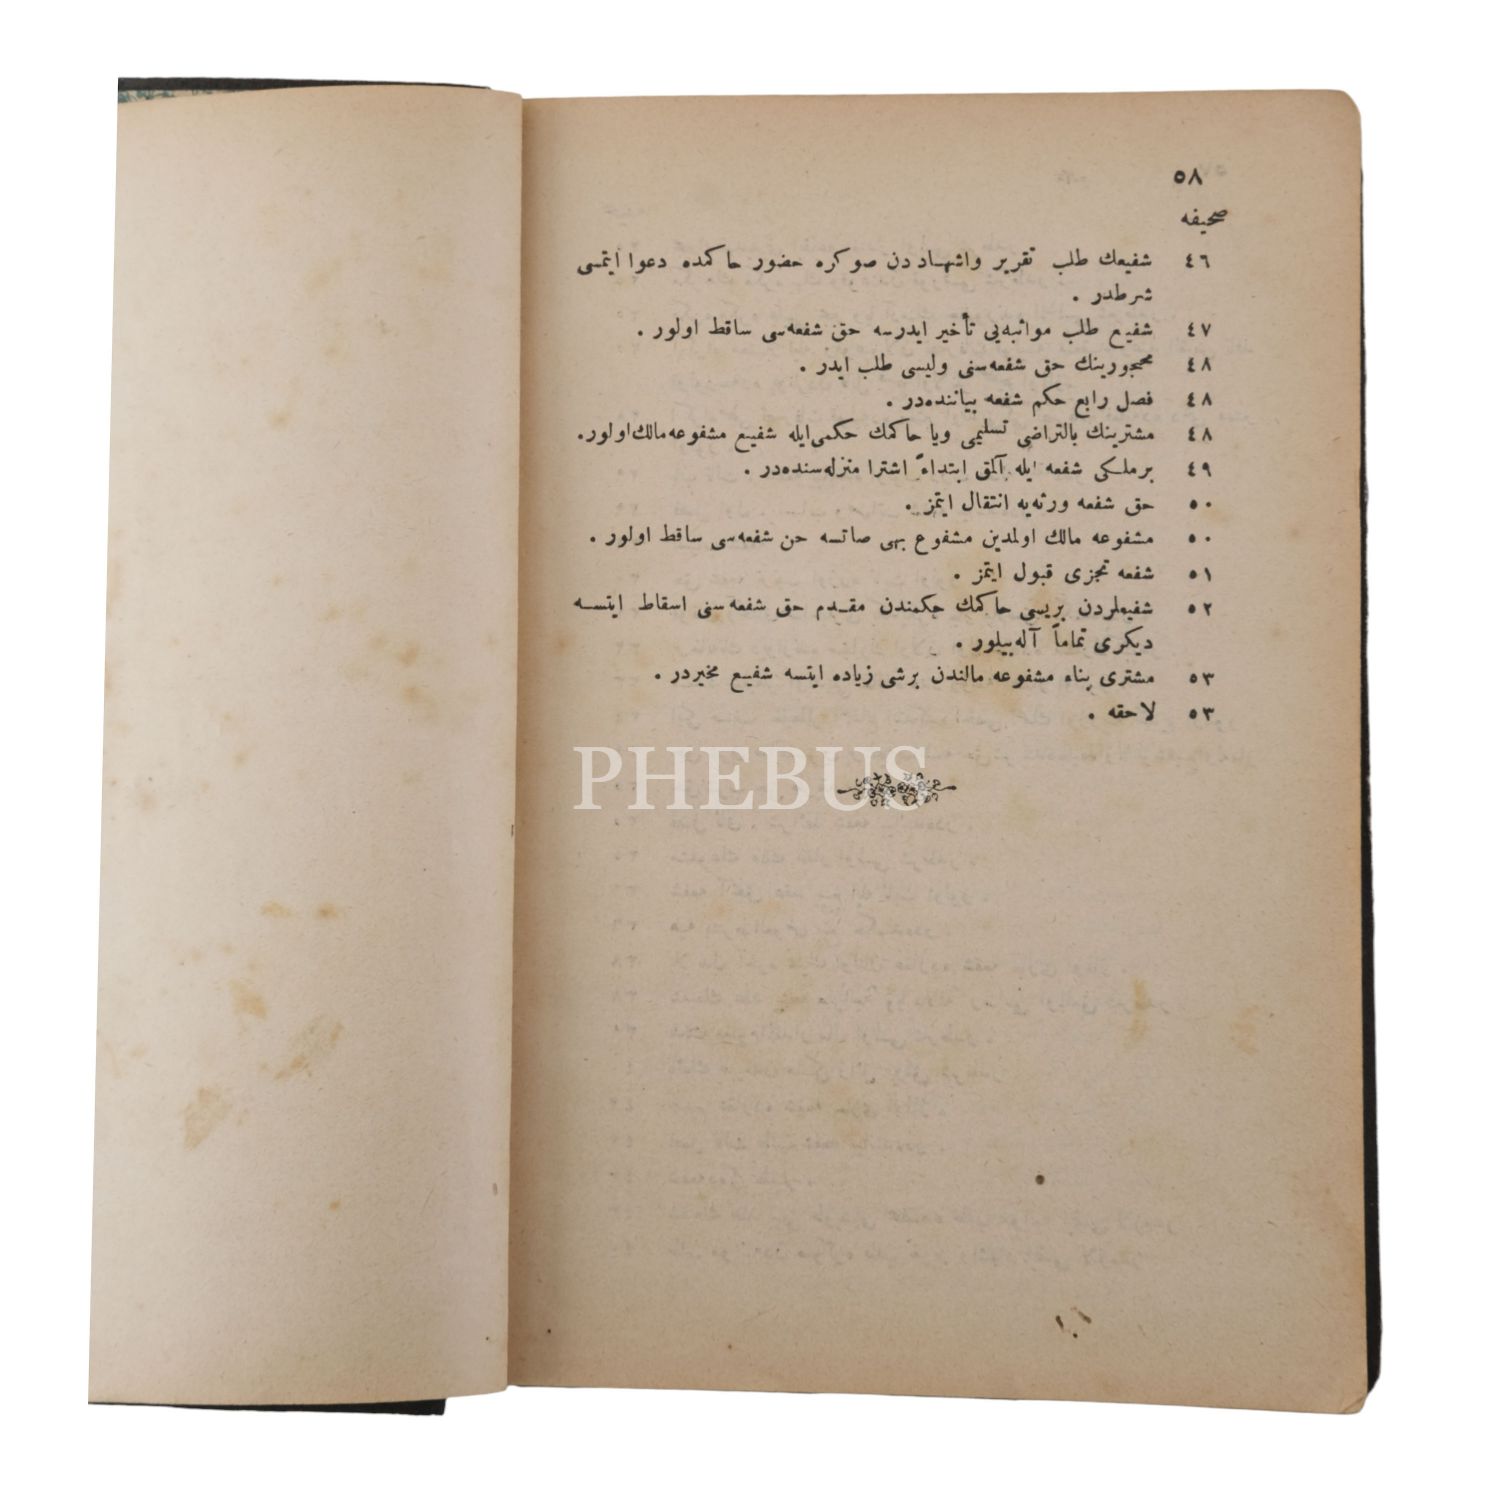 ٥٨
صحیفه
٤٦ شفیعك طلب تقریر واشهاد دن صوکره حضور حاکمده دعوا ایتمسی
شرطدر .
٤٧ شفیع طلب مواثبه‌یی تأخیر ایدرسه حق شفعه‌سی ساقط اولور .
٤٨ محجورینك حق شفعه‌سنی ولیسی طلب ایدر .
٤٨ فصل رابع حکم شفعه بیاننده‌در .
٤٨ مشترینك بالتراضی تسلیمی ویا حاکمك حکمی‌ایله شفیع مشفوعه‌مالك‌اولور.
٤٩ برملکی شفعه ایله آلمق ابتداءً اشترا منزله‌سنده‌در .
٥٠ حق شفعه ورثه‌یه انتقال ایتمز .
٥٠ مشفوعه مالك اولمدین مشفوع بهی صاتسه حن شفعه‌سی ساقط اولور .
٥١ شفعه تجزی قبول ایتمز .
٥٢ شفیعلردن بریسی حاکمك حکمندن مقدم حق شفعه‌سنی اسقاط ایتسه
دیکری تماماً آله‌بیلور .
٥٣ مشتری بناء مشفوعه مالندن برشی زیاده ایتسه شفیع مخیردر .
٥٣ لاحقه .
PHEBUS